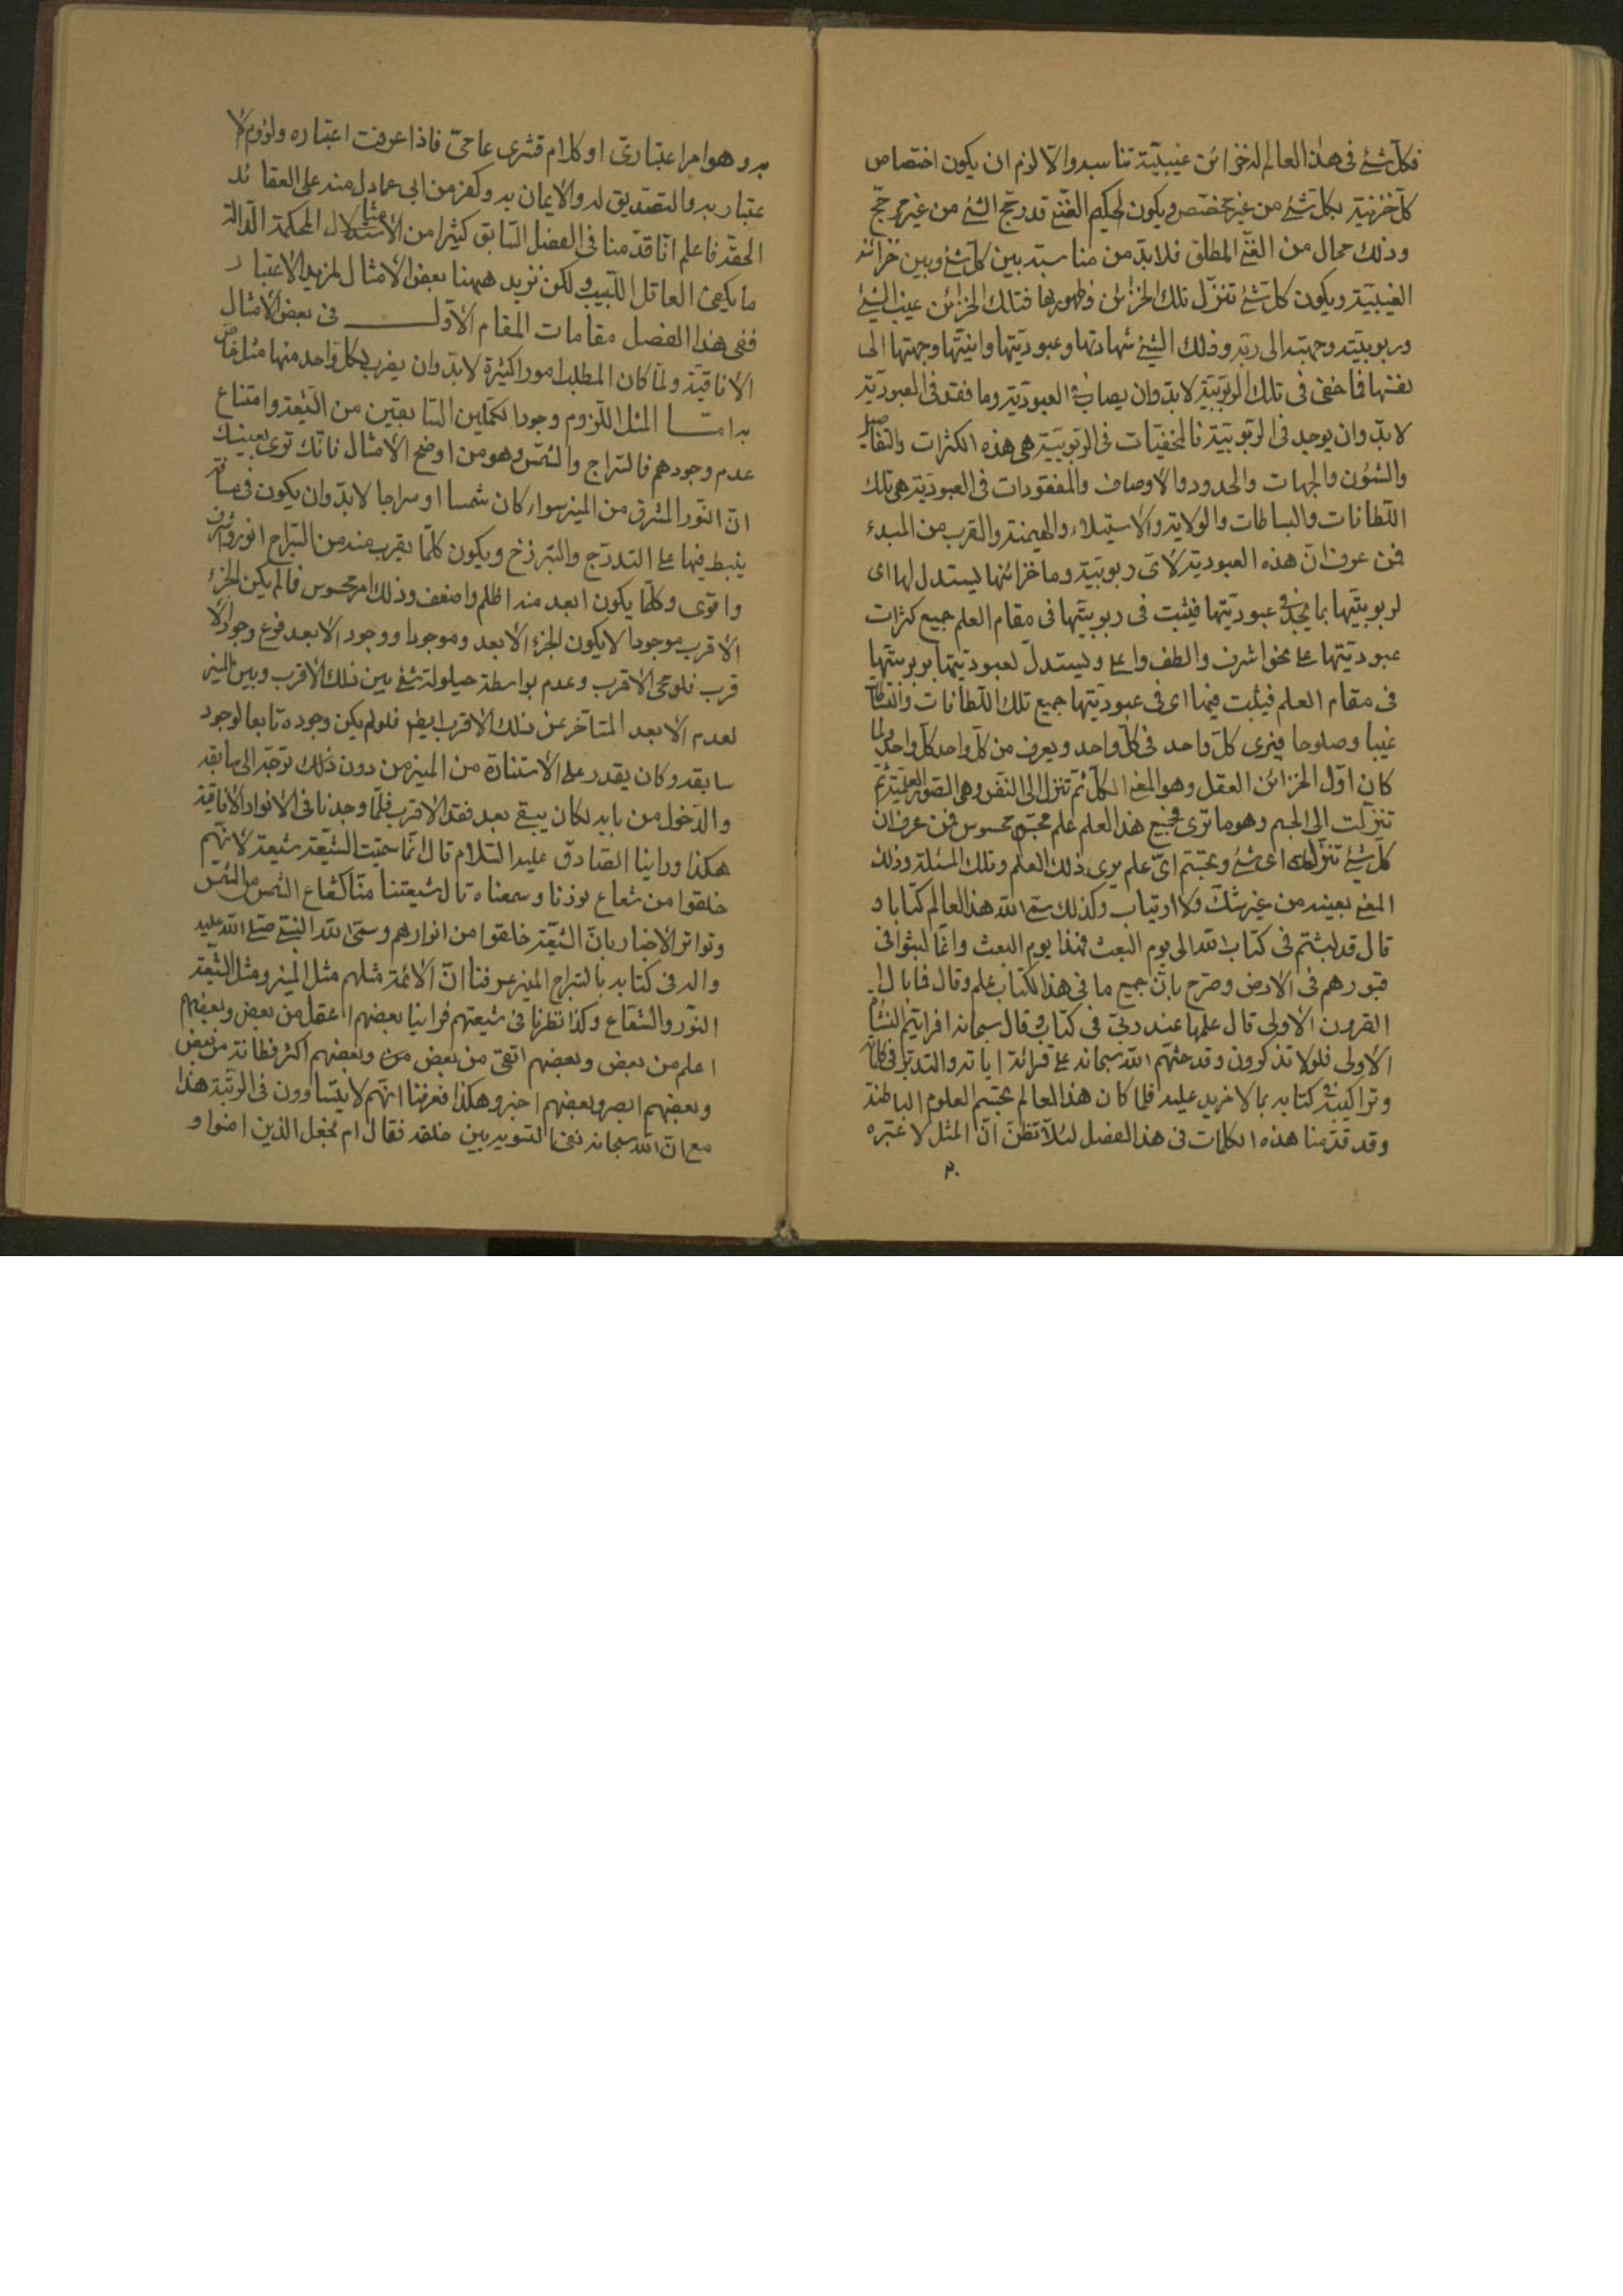 فكلّ شئ فى هذا العالم له خزائن غيبيّة تناسبه والّا لزم ان يكون اختصاص
كلّ خزنية بكلّ شئ من غير مخصّص ويكون الحكيم الغنىّ قد رجّح الشئ من غير مرجّح
وذلك محال من الغنىّ المطلق فلابدّ من مناسبة بين كلّ شئ وبين خزائنه
الغيبيّة ويكون كلّ شئ تنزّل تلك الخزائن وظهورها فتلك الخزائن غيب الشئ
وربوبيّته وجهته الى ربّه وذلك الشئ شهادتها وعبوديّتها وانيّتها وجهتها الى
نفسها فما خفى فى تلك الربوبيّة لابدّ وان يصاب فى العبوديّة وما فقد فى العبوديّة
لابدّ وان يوجد فى الربوبيّة فالمخفيّات فى الربوبيّة هى هذه الكثرات والتفاصيل
والشئون والجهات والحدود والاوصاف والمفقودات فى العبوديّة هى تلك
اللّطافات والبساطات والولاية والاستيلاء والهيمنة والقرب من المبدء
فمن عرف انّ هذه العبوديّة لاىّ ربوبيّة وما خزائنها يستدل لها اى
لربوبيّتها بما يجد فى عبوديّتها فيثبت فى ربوبيّتها فى مقام العلم جميع كثرات
عبوديّتها على نحو اشرف والطف واعلى ويستدلّ لعبوديّتها بربوبيّتها
فى مقام العلم فيثبت فيها اى فى عبوديّتها جميع تلك اللّطافات والبساطات
غيبا وصلوحا فيرى كلّ واحد فى كلّ واحد ويعرف من كلّ واحد كلّ واحد ولما
كان اوّل الخزائن العقل وهو المعنى الكلّى ثمّ تنزل الى النفس وهى الصّور العلميّة ثمّ
تنزّلت الى الجسم وهو ما ترى فجميع هذا العلم علم مجسّم محسوس فمن عرف ان
كلّ شئ تنزّل اى شئ وتجسّم اىّ علم يرى ذلك العلم وتلك المسئلة وذلك
المعنى بعينه من غير شكّ ولا ارتياب وكذلك سمّى اللّه هذا العالم كتابا و
قال قد لبثتم فى كتاب اللّه الى يوم البعث فهذا يوم البعث وانّما لبثوا فى
قبورهم فى الارض وصرح بانّ جميع ما فى هذا الكتاب علم وقال فما بال
القرون الاولى قال علمها عند ربّى فى كتاب وقال سبحانه افرايتم النشأة
الاولى فلولا تذكرون وقد حثّهم اللّه سبحانه على قرائة اياته والتدبّر فى كلماته
وتراكيب كتابه بما لا مزيد عليه فلما كان هذا العالم تجسّم العلوم الباطنة
وقد قدّمنا هذه الكلمات فى هذا الفصل لئلّا تظنّ انّ المثل لا عبرة
به وهو امر اعتبارىّ او كلام قشرى عامىّ فاذا عرفت اعتباره ولزوم الا
عتبار به والتصديق له والايمان به وكفر من ابى عما دل منه على العقائد
الحقّة فاعلم انّا قدّمنا فى الفصل السّابق كثيرا من الاستدلال المحكمة الدّالة
ما يكفى العاقل اللّبيب ولكن نزيد ههنا بعض الامثال لمزيد الاعتبار
ففى هذا الفصل مقامات المقام الاوّل فى بعض الامثال
الافاقيّة ولمّا كان المطلب امورا كثيرة لابدّ وان يضرب لكلّ واحد منها مثل خاصّ
به امّا المثل للزوم وجود الكملين السّابقين من الشّيعة وامتناع
عدم وجودهم فالسّراج والشّمس وهو من اوضح الامثال فانّك ترى بعينيك
انّ النّور المشرق من المنير سواء كان شمسا او سراجا لابدّ وان يكون فى مسافة
ينبسط فيها على التدرّج والتبرزخ ويكون كلّما يقرب منه من السّراج انور واشرف
واقوى وكلّما يكون ابعد منه اظلم واضعف وذلك امر محسوس فما لم يكن الجزء
الاقرب موجودا لا يكون الجزء الابعد موجودا ووجود الابعد فرع وجود الا
قرب فلو محى الاقرب وعدم بواسطة حيلولة شئ بين ذلك الاقرب وبين المنير
لعدم الابعد المتأخّر عن ذلك الاقرب ايضا فلو لم يكن وجوده تابعا لوجود
سابقه وكان يقدر على الاستنارة من المنير من دون ذلك توجّه الى سابقه
والدّخول من بابه لكان يبقى بعد فقد الاقرب فلمّا وجدنا فى الانوار الافاقيّة
هكذا وراينا الصّادق عليه السّلام قال انّما سمّيت الشّيعة شيعة لانّهم
خلقوا من شعاع نورنا وسمعناه قال شيعتنا منّا كشعاع الشمس من الشّمس
وتواتر الاخبار بانّ الشّيعة خلقوا من انوارهم وسمّى اللّه النبىّ صلّى اللّه عليه
واله فى كتابه بالسّراج المنير عرفنا انّ الائمة مثلهم مثل المنير ومثل الشّيعة
النّور والشّعاع وكذا نظرنا فى شيعتهم فراينا بعضهم اعقل من بعض وبعضهم
اعلم من بعض وبعضهم اتقى من بعض وبعضهم اكثر فطانة من بعض
وبعضهم ابصر وبعضهم اخبر وهكذا فعرفنا انّهم لا يتساوون فى الرتبة هذا
مع انّ اللّه سبحانه نفى التسوية بين خلقه فقال ام نجعل الذين امنوا و